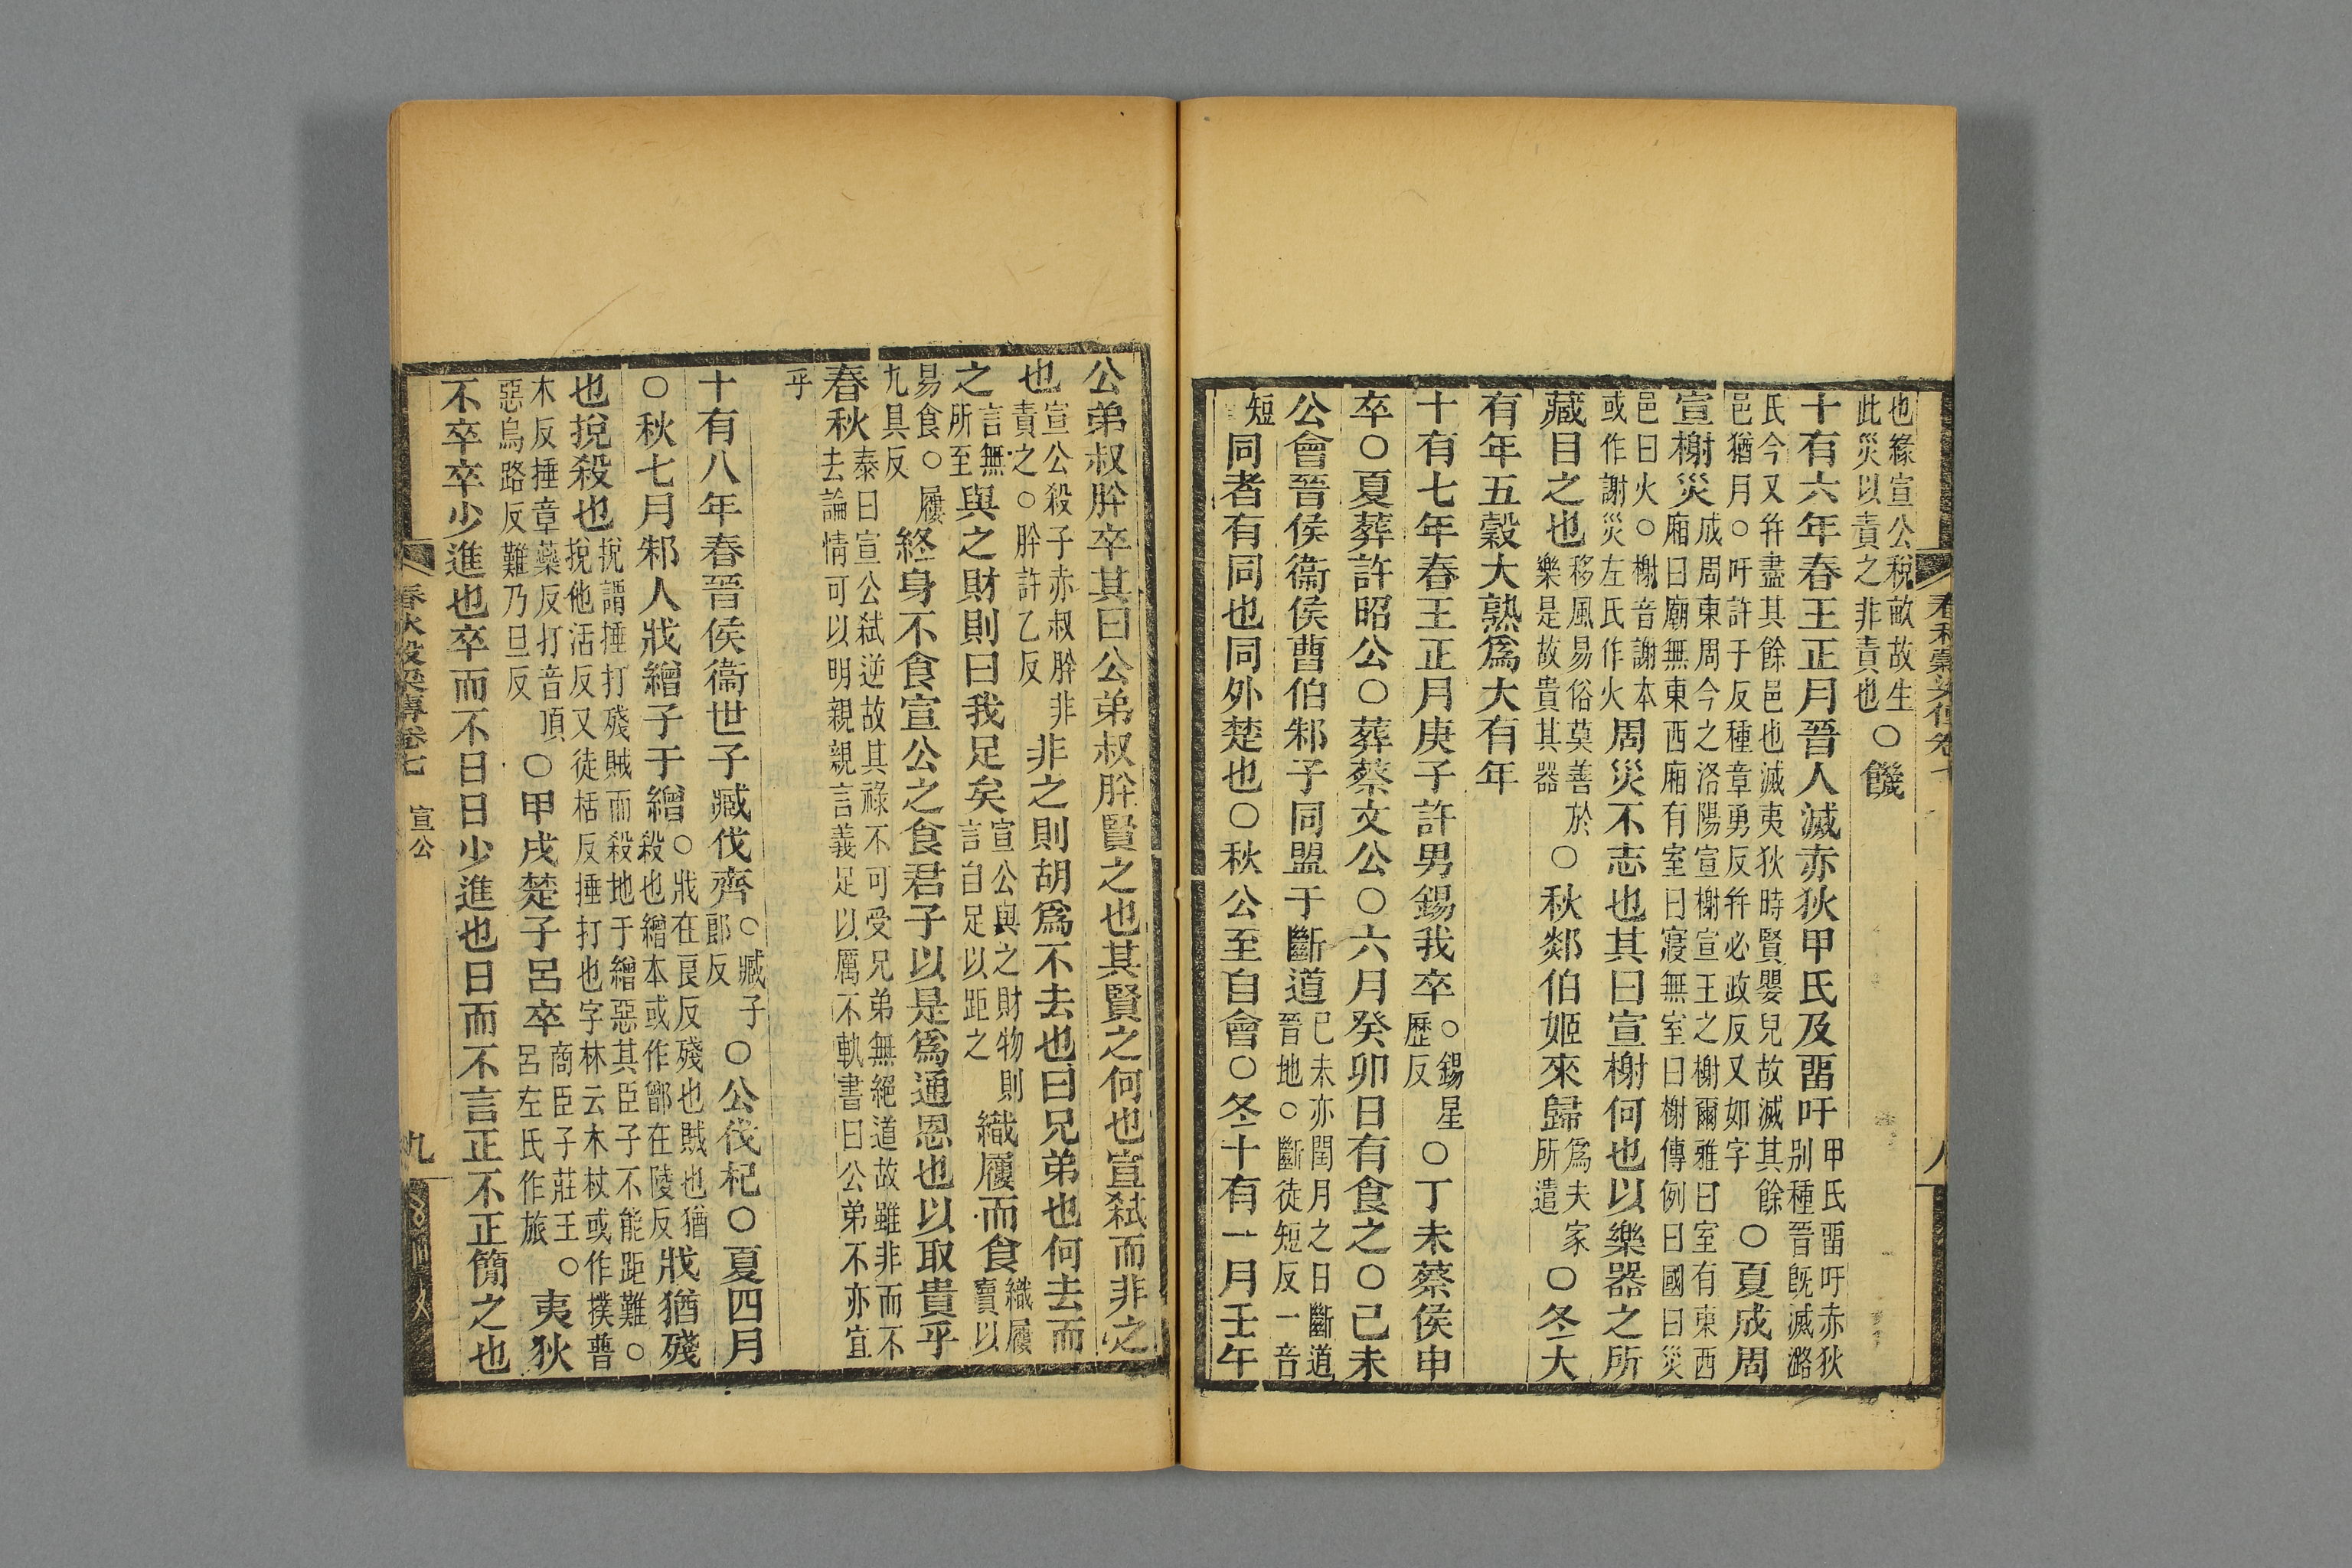 也緣宣公稅畝故生此災以責之非責也〇饑
十有六年春王正月晉人滅赤狄甲氏及畱吁甲氏畱吁赤狄別種晉旣滅潞
氏今又幷盡其餘邑也滅夷狄時賢嬰兒故滅其餘邑猶月〇吁許于反種章勇反幷必政反又如字〇夏成周
宣榭災成周東周今之洛陽宣榭宣王之榭爾雅曰室有東西廂曰廟無東西廂有室曰寢無室曰榭傳例曰國曰災
邑曰火〇榭音謝本或作謝災左氏作火周災不志也其曰宣榭何也以樂器之所
藏目之也移風易俗莫善於樂是故貴其器〇秋郯伯姬來歸爲夫家所遣〇冬大
有年五穀大熟爲大有年
十有七年春王正月庚子許男錫我卒〇錫星歷反〇丁未蔡侯申
卒〇夏葬許昭公〇葬蔡文公〇六月癸卯日有食之〇己未
公會晉侯衞侯曹伯邾子同盟于斷道己未亦閏月之日斷道晉地〇斷徒短反一音
短同者有同也同外楚也〇秋公至自會〇冬十有一月壬午
公弟叔肸卒其曰公弟叔肸賢之也其賢之何也宣弒而非之
也宣公殺子赤叔肸非責之〇肸許乙反非之則胡爲不去也曰兄弟也何去而
之言無所至與之財則曰我足矣宣公與之財物則言自足以距之織屨而食織屨賣以
易食〇屨九具反終身不食宣公之食君子以是爲通恩也以取貴乎
春秋泰曰宣公弒逆故其祿不可受兄弟無絕道故雖非而不去論情可以明親親言義足以厲不軌書曰公弟不亦宜
乎
十有八年春晉侯衞世子臧伐齊〇臧子郎反〇公伐杞〇夏四月
〇秋七月邾人戕繒子于繒〇戕在良反殘也賊也猶殺也繒本或作鄫在陵反戕猶殘
也挩殺也挩謂捶打殘賊而殺地于繒惡其臣子不能距難〇挩他活反又徒栝反捶打也字林云木杖或作撲普
木反捶章藥反打音頂惡烏路反難乃旦反〇甲戌楚子呂卒商臣子莊王〇呂左氏作旅夷狄
不卒卒少進也卒而不日日少進也日而不言正不正簡之也
春秋穀梁傳卷七 宣公 九